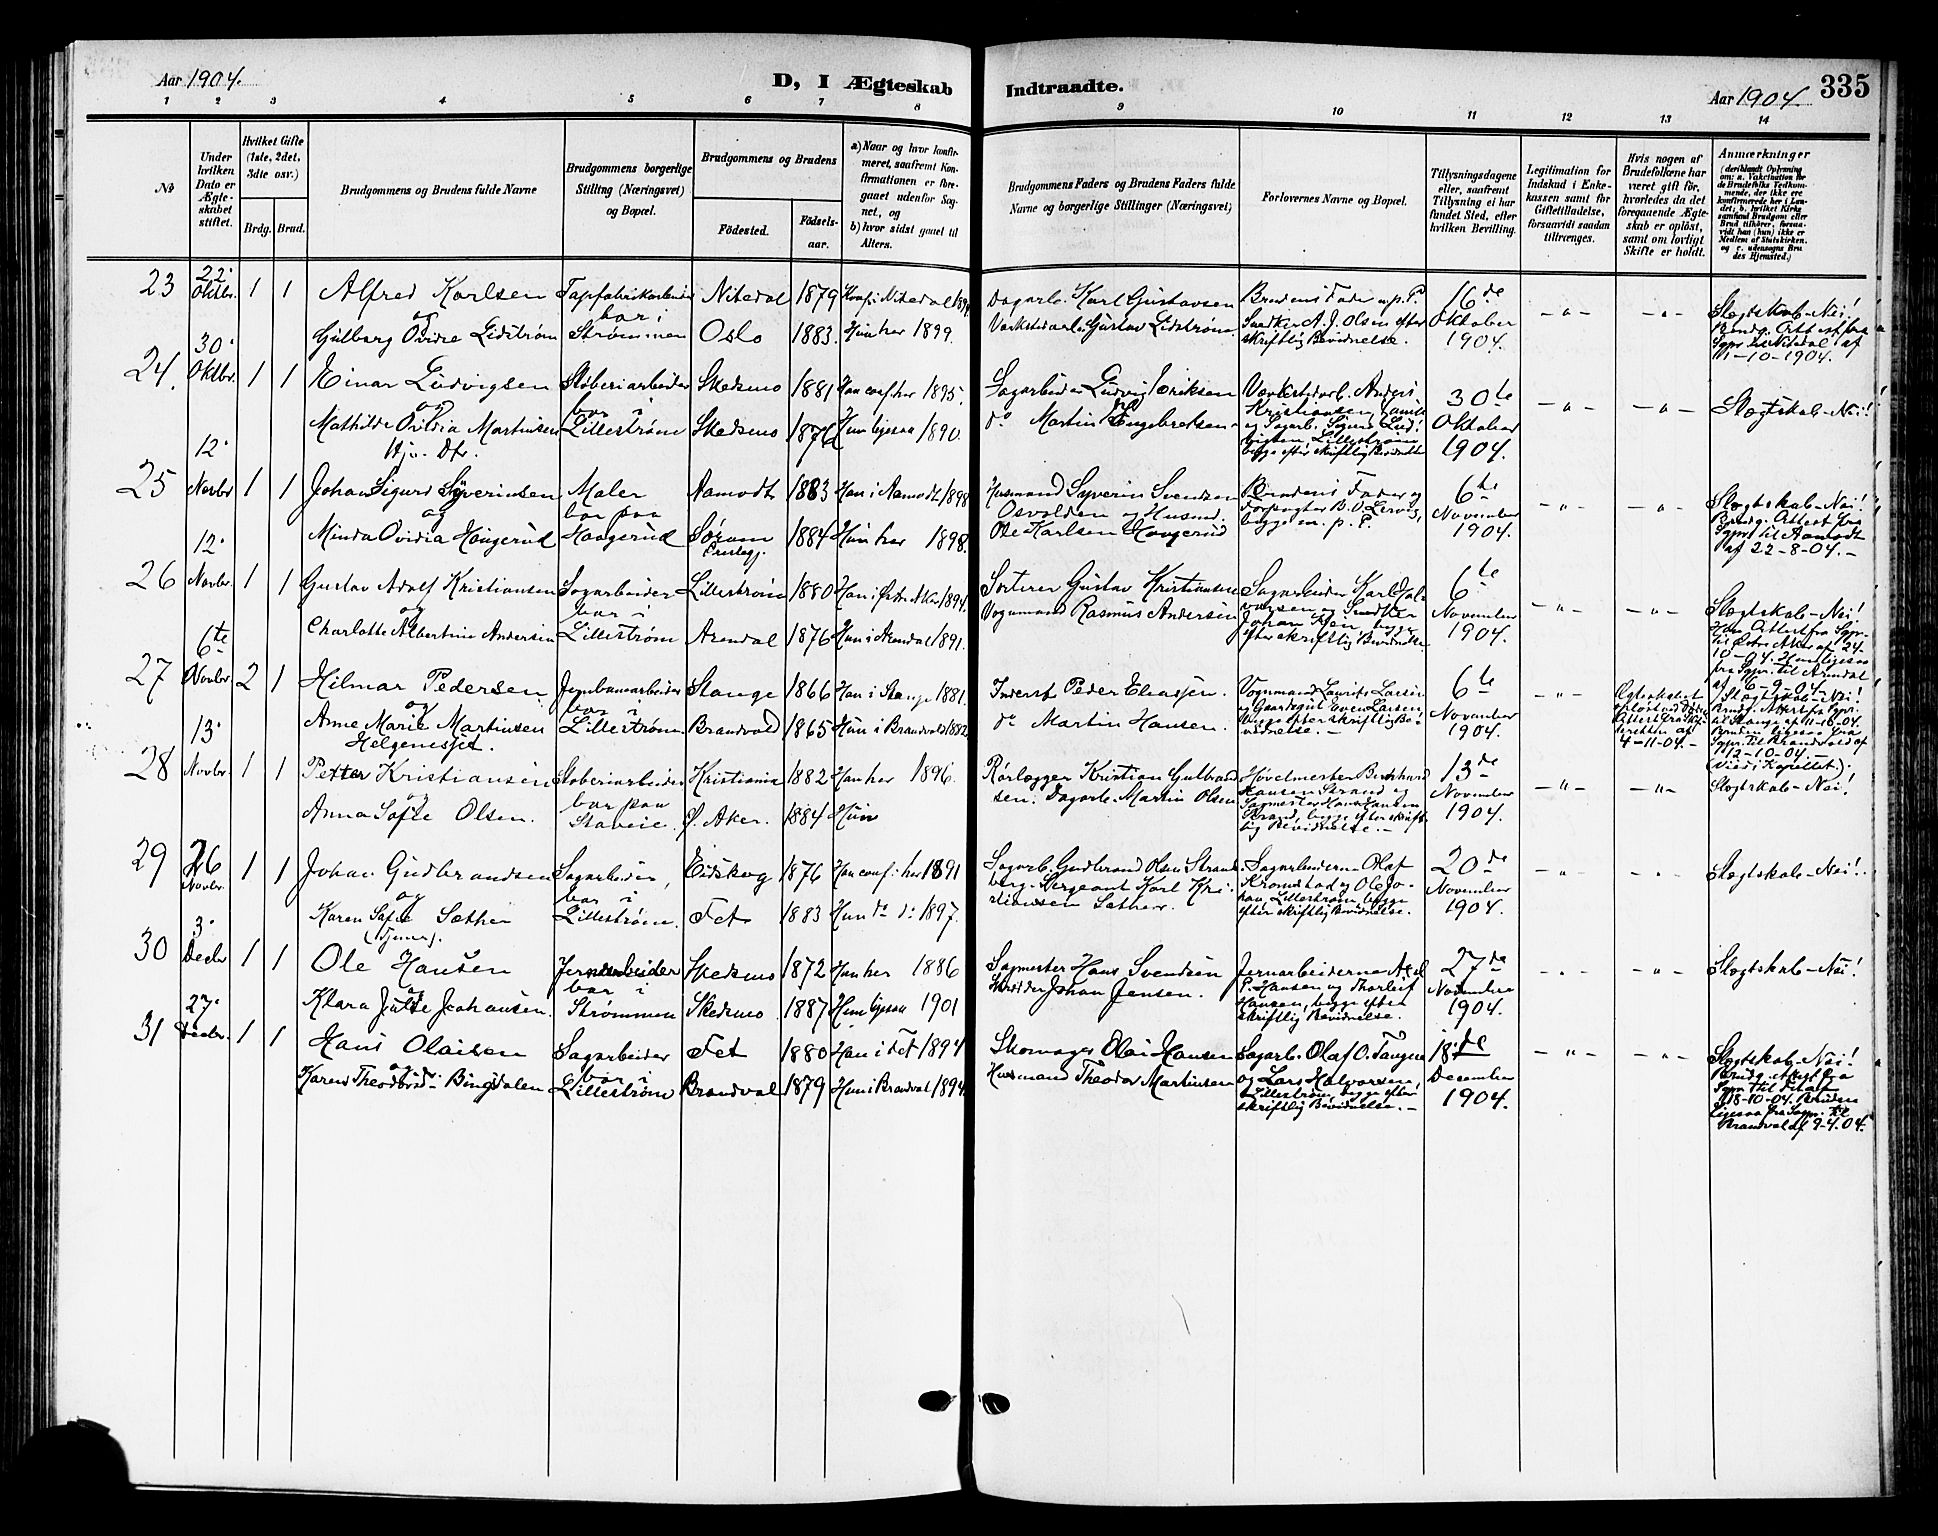 Aar 1904.
D, I Ægteskab Indtraadte.
Aar 1904. 335
1 2 3 4 5 6 7 8 9 10 11 12 13 14
№
Under hvilken Dato er Ægteskabet stiftet.
Hvilket Gifte (1ste, 2det, 3die osv.)
Brdg. Brud.
Brudgommens og Brudens fulde Navne
Brudgommens borgerlige Stilling (Næringsvei) og Bopæl.
Brudgommens og Brudens
Födested. Födselsaar.
a) Naar og hvor konfirmeret, saafremt Konfirmationen er foregaaet udenfor Sognet, og
b) hvor sidst gaaet til Alters.
Brudgommens Faders og Brudens Faders fulde Navne og borgerlige Stillinger (Næringsvei)
Forlovernes Navne og Bopæl.
Tillysningsdagene eller, saafremt Tillysning ei har fundet Sted, efter hvilken Bevilling.
Legitimation for Indskud i Enkekassen samt for Giftetilladelse, forsaavidt saadan tiltrænges.
Hvis nogen af Brudefolkene har været gift för, hvorledes da det foregaaende Ægteskab er oplöst, samt om lovligt Skifte er holdt.
Anmærkninger
23 22. Oktbr. 1 1 Alfred Karlsen
og
Gulborg Ovidie Lidstrøm
Tapfabrikarbeider
bor i
Strømmen
Nitedal 1879 Konf. i Nitedal
Oslo 1883. Hun her 1899.
Dagarb. Karl Gustavsen
Værkstedarb. Gustav Lidstrøm.
Brudens Fader m. p. P.
Snedker A. J. Olsen efter
skriftlig Bevidnelse.
16de
Oktober
1904.
- " - - " -
Slægtskab - Nei!
Brudg. Attest fra
Sgpr. til Nitedal af
11-10-1904.
24. 30. Oktbr. 1 1 Einar Ludvigsen
og
Mathilde Ovidia Martinsen
Hjv. Dtr.
Støberiarbeider
bor i
Lillestrøm
Skedsmo 1881 Han conf. her 1895.
Skedsmo 1876 Hun ligesaa 1890.
Sagarbeider Ludvig Eriksen
do Martin Engebretsen
Værkstedarb. Anders
Kristiansen
og Sagarb. Sigurd Lud-
vigsen, Lillestrøm
begge efter skriftlig Bevidnelse
30te
Oktober
1904.
- " - - " -
Slægtskab - Nei!
25 12. Novbr 1 1 Johan Sigurd Syverinsen
og
Minda Ovidia Haugerud
Maler
bor paa
Haugerud
Aamodt 1883 Han i Aamodt 1898
Sørum 1884 Hun her 1898.
Præstegj.
Husmand Syverin Svendsen
Osvolden og Husmd.
Ole Karlsen Haugerud
Brudens Fader og
Forpagter B. O. Lervig,
begge m. p. P.
6te
November
1904.
- " - - " -
Slægtskab - Nei!
Brudg. Attest fra
Sgpr. til Aamodt
af 22-8-04. -
26 12. Novbr. 1 1 Gustav Adolf Kristiansen
og
Charlotte Albertine Andersen
Sagarbeider
bor i
Lillestrøm
Lillestrøm 1880 Han i Østre Aker 1894.
Arendal 1876 Hun i Arendal 1891.
Sorterer Gustav Kristiansen
Vognmand Rasmus Andersen
Sagarbeider Karl Hal-
vorsen og Snedker
Johan Lien begge
efter skriftlig Bevidnelse
6te
November
1904.
- " - - " -
Slægtskab - Nei!
Hans Attest fra Sgpr.
til Østre Aker af 24-
10-04. Hun ligesaa
fra Sgpr. til Arendal
af 6-9-04. -
27 6te Novbr 2 1 Hilmar Pedersen
og
Anne Marie Martinsen
Helgenesset.
Jernbanearbeider
bor i
Lillestrøm
Stange 1866 Han i Stange 1881.
Brandvold 1865 Hun i Brandvold 1882.
Inderst Peder Eliassen.
do Martin Hansen.
Vognmand Laurits Larsen
og Gaardsgut Even Larsen,
begge efter skriftlig Be-
vidnelse. -
6te
November
1904.
- " -
Ægteskabet
opløst ved Døden
Attest fra Skif-
teretten af
4-11-04. -
Slægtskab - Nei!
Brudg. Attest fra Sgpr.
til Stange af 11-10-04.
Bruden ligesaa fra
Sgpr. til Brandvold af
12-10-04
(Viedi Kapellet).
28 13. Novbr. 1 1 Petter Kristiansen
og
Anna Sofie Olsen.
Støberiarbeider
bor paa
Staveie.
Kristiania 1882 Han her 1896.
Ø. Aker. 1884 Hun
Rørlægger Kristian Gulbrand-
sen. Dagarb. Martin Olsen
Høvelmester Bernhard
Hansen Strand og
Sagmester Hans Hansen
Strand, begge efter skrift-
lig Bevidnelse. -
13de
November
1904.
- " - - " -
Slægtskab - Nei!
29 26 Novbr. 1 1 Johan Gudbrandsen
og
Karen Sofie Sæther
(Hjemv.)
Sagarbeider,
bor i
Lillestrøm.
Eidskog 1876 Han conf. her 1891
Fet 1883 Hun do do 1897.
Sagarb. Gudbrand Olsen Strand-
berg. Sergeant Karl Kri-
stiansen Sæther.
Sagarbeiderne Olaf
Kromstad og Ole Jo-
han, Lillestrøm, begge
efter skriftlig Bevidnelse.
20de
November
1904.
- " - - " -
Slægtskab - Nei!
30 3. Decbr 1 1 Ole Hansen
og
Klara Julie Johansen.
Jernarbeider
bor i
Strømmen
Skedsmo 1872 Han her 1886
Skedsmo. 1887 Hun ligesaa 1901
Sagmester Hans Svendsen
Johan Jensen.
Jernarbeiderne Axel
P. Hansen og Thorleif
Hansen, begge efter
skriftlig Bevidnelse.
27de
November
1904.
- " - - " -
Slægtskab - Nei!
31 27. Decbr. 1 1 Hans Olaisen
og
Karen Theodora Bingsdalen
Sagarbeider
bor i
Lillestrøm
Fet 1880 Han i Fet 1894
Brandval 1879 Hun i Brandval 1894
Skomager Olai Hansen
Husmand Theodor Martinsen
Sagarb. Olaf O. Tangen
og Lars Halvorsen,
Lillestrøm, begge efter
skriftlig Bevidnelse. -
18de
December
1904.
- " - - " -
Slægtskab - Nei!
Brudg. Attest fra
Sgpr. til Fet af
18-10-04. Bruden
ligesaa fra Sogpr. til
Brandval af 9-4.04.